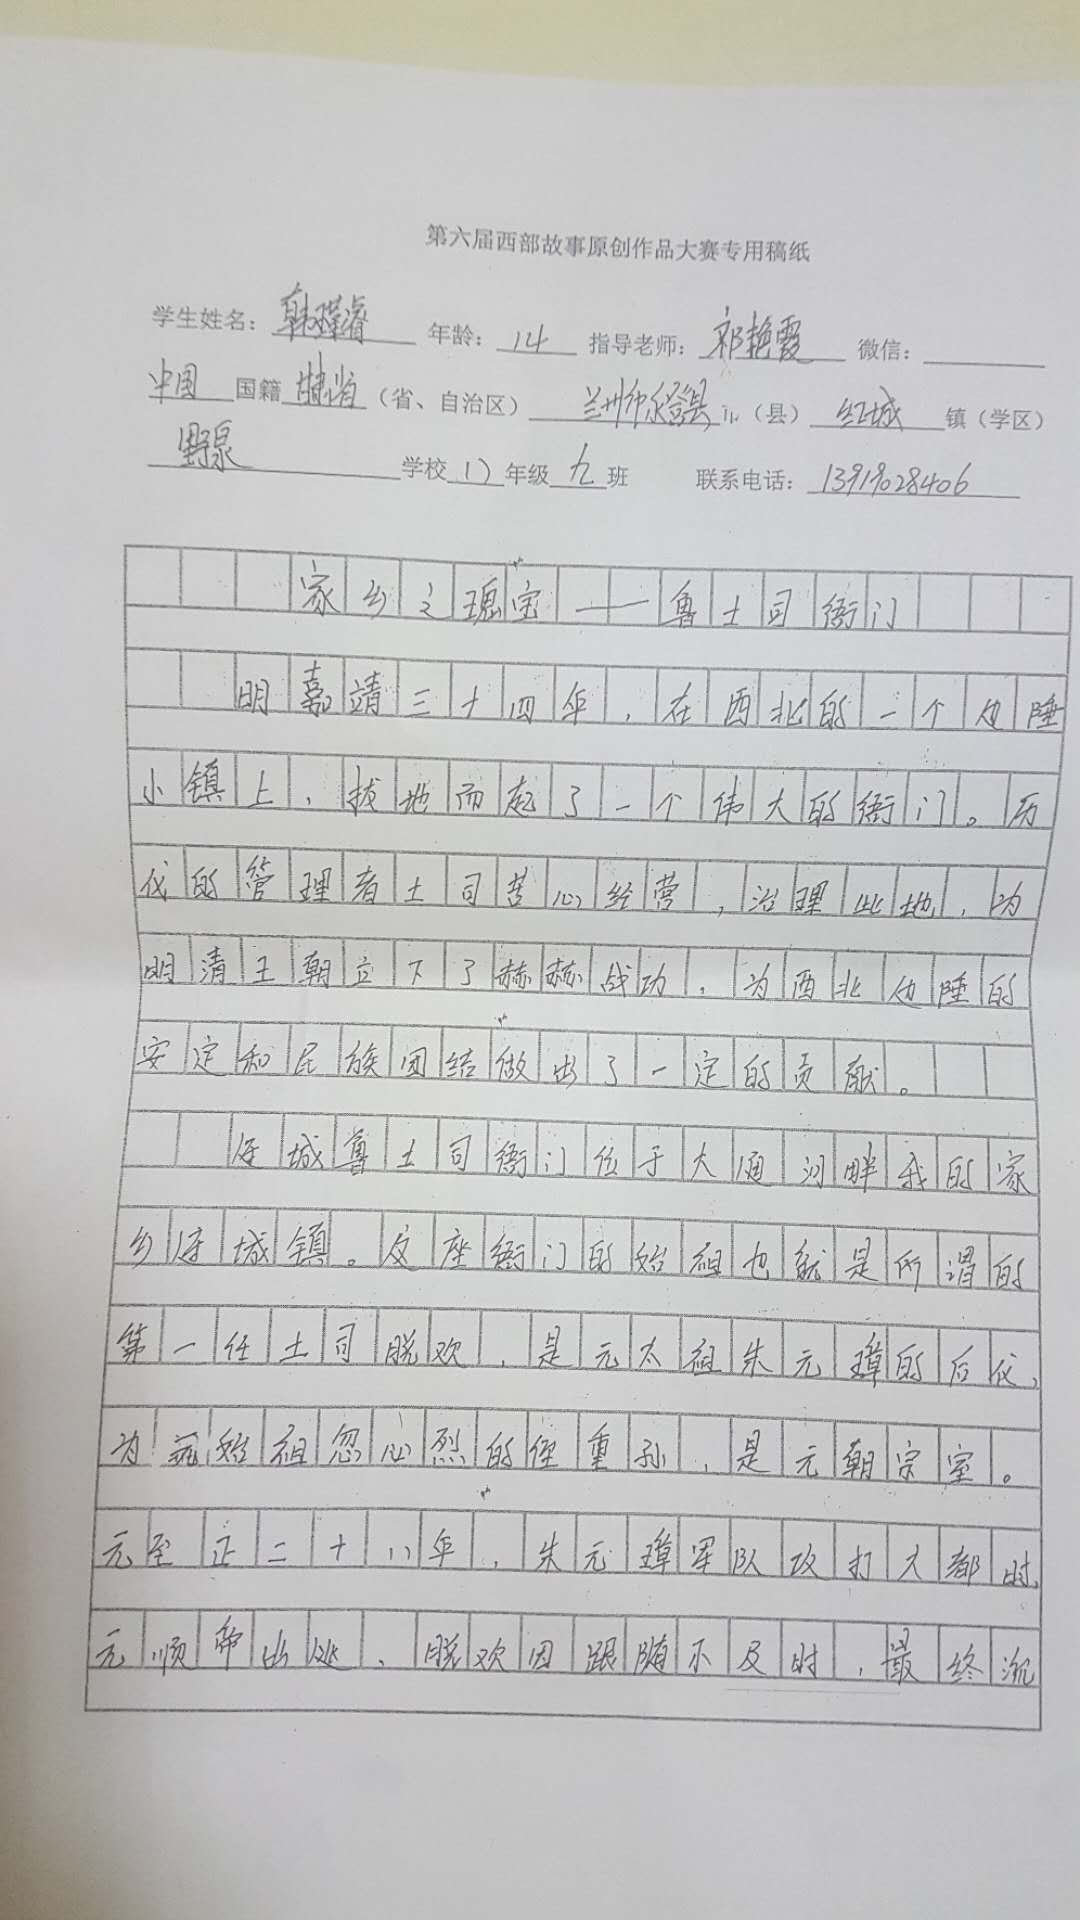 第六届西部故事原创作品大赛专用稿纸
学生姓名： 韩璍睿 年龄： 14 指导老师： 祁艳霞 微信：
中国 国籍 甘肃省 （省、自治区） 兰州市永登县 市（县） 红城 镇（学区）
野泉 学校 八 年级 九 班 联系电话： 13919028406
家乡之瑰宝——鲁土司衙门
明嘉靖三十四年，在西北的一个边陲
小镇上，拔地而起了一个伟大的衙门。历
代的管理者土司苦心经营，治理此地，为
明清王朝立下了赫赫战功，为西北边陲的
安定和民族团结做出了一定的贡献。
连城鲁土司衙门位于大通河畔我的家
乡连城镇。这座衙门的始祖也就是所谓的
第一任土司脱欢，是元太祖朱元璋的后代，
为 始祖忽必烈的侄重孙，是元朝宗室。
元至正二十八年，朱元璋军队攻打大都时，
元顺帝出逃，脱欢因跟随不及时，最终流